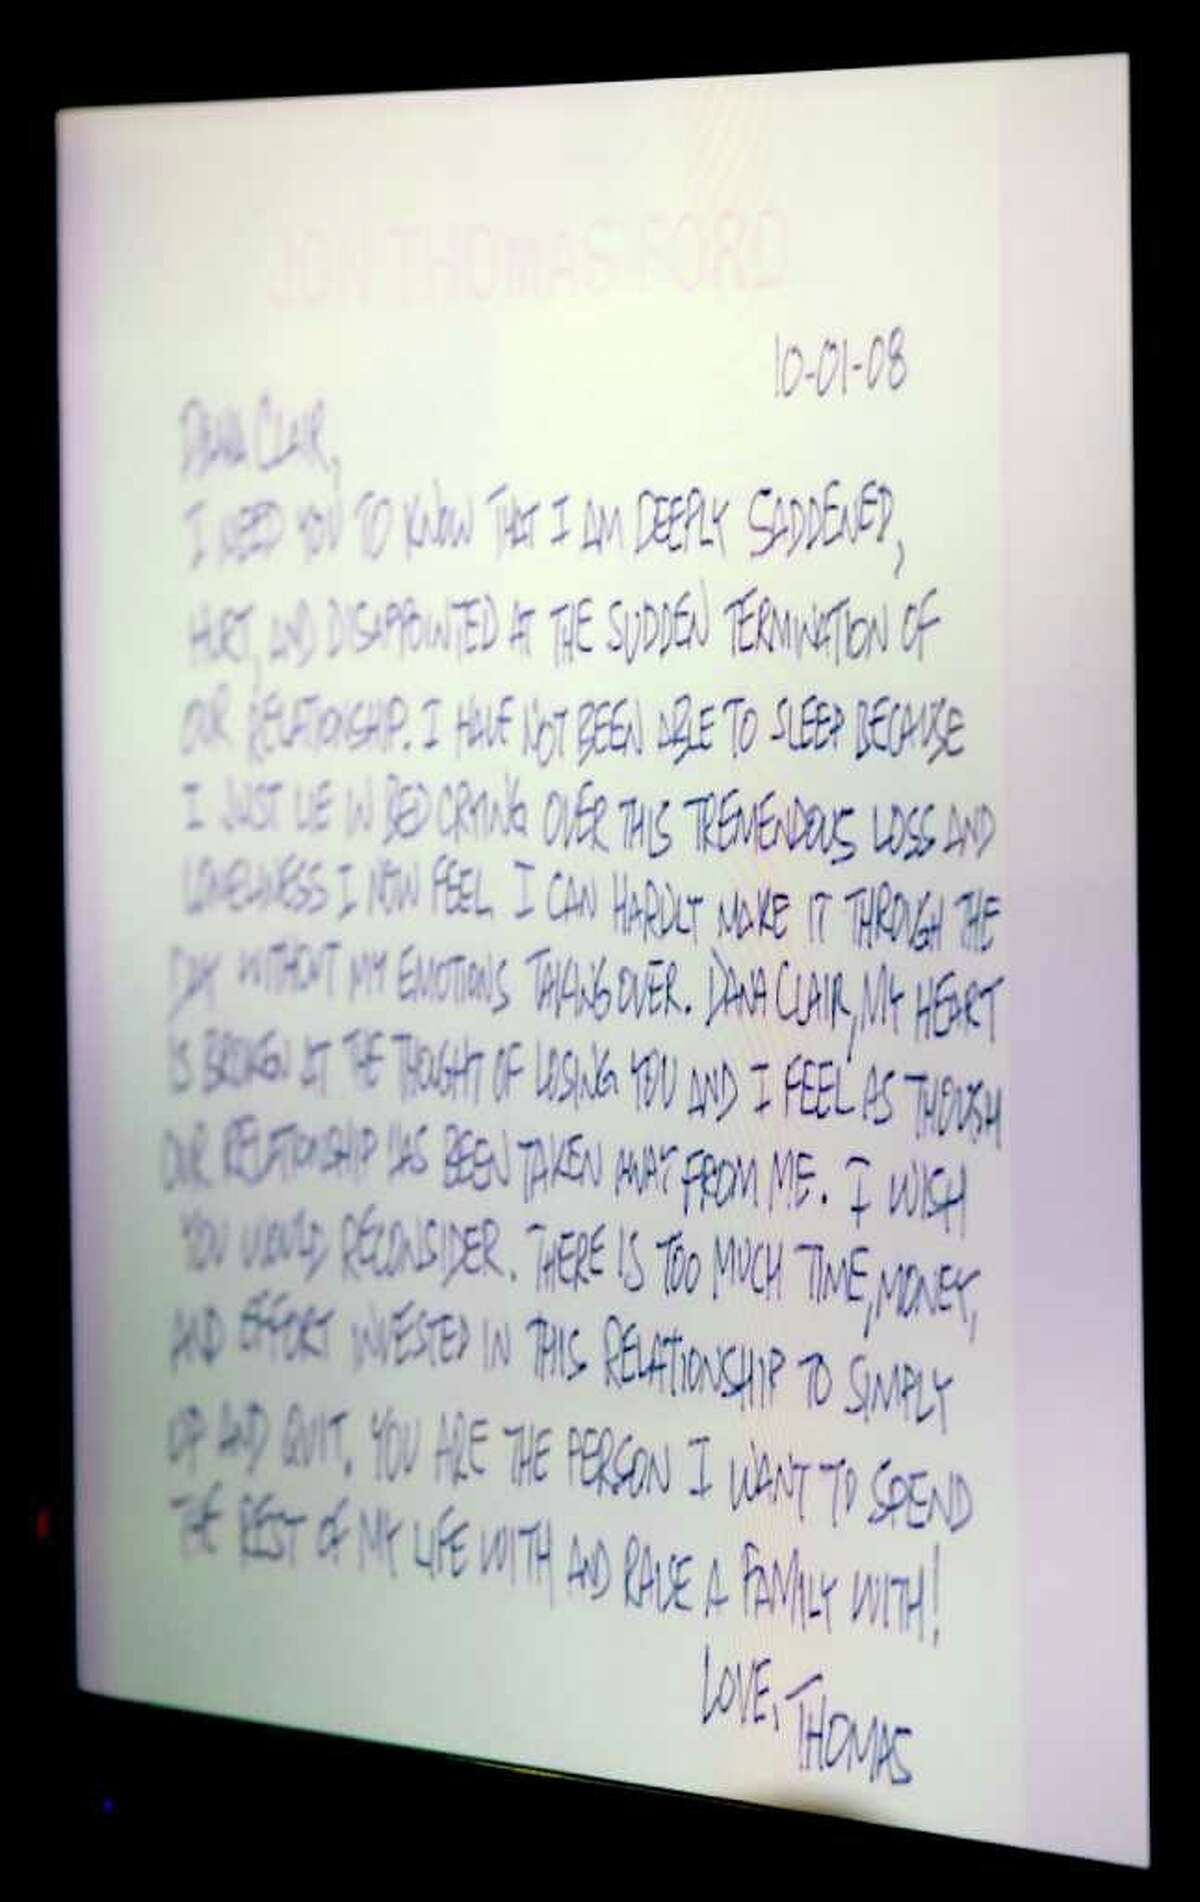 JON THOMAS FORD
10-01-08
DANA CLAIR,
I NEED YOU TO KNOW THAT I AM DEEPLY SADDENED,
HURT, AND DISAPPOINTED AT THE SUDDEN TERMINATION OF
OUR RELATIONSHIP. I HAVE NOT BEEN ABLE TO SLEEP BECAUSE
I JUST LIE IN BED CRYING OVER THIS TREMENDOUS LOSS AND
LONELINESS I NOW FEEL. I CAN HARDLY MAKE IT THROUGH THE
DAY WITHOUT MY EMOTIONS TAKING OVER. DANA CLAIR, MY HEART
IS BROKEN AT THE THOUGHT OF LOSING YOU AND I FEEL AS THOUGH
OUR RELATIONSHIP HAS BEEN TAKEN AWAY FROM ME. I WISH
YOU WOULD RECONSIDER. THERE IS TOO MUCH TIME, MONEY,
AND EFFORT INVESTED IN THIS RELATIONSHIP TO SIMPLY
UP AND QUIT. YOU ARE THE PERSON I WANT TO SPEND
THE REST OF MY LIFE WITH AND RAISE A FAMILY WITH!
LOVE,
THOMAS